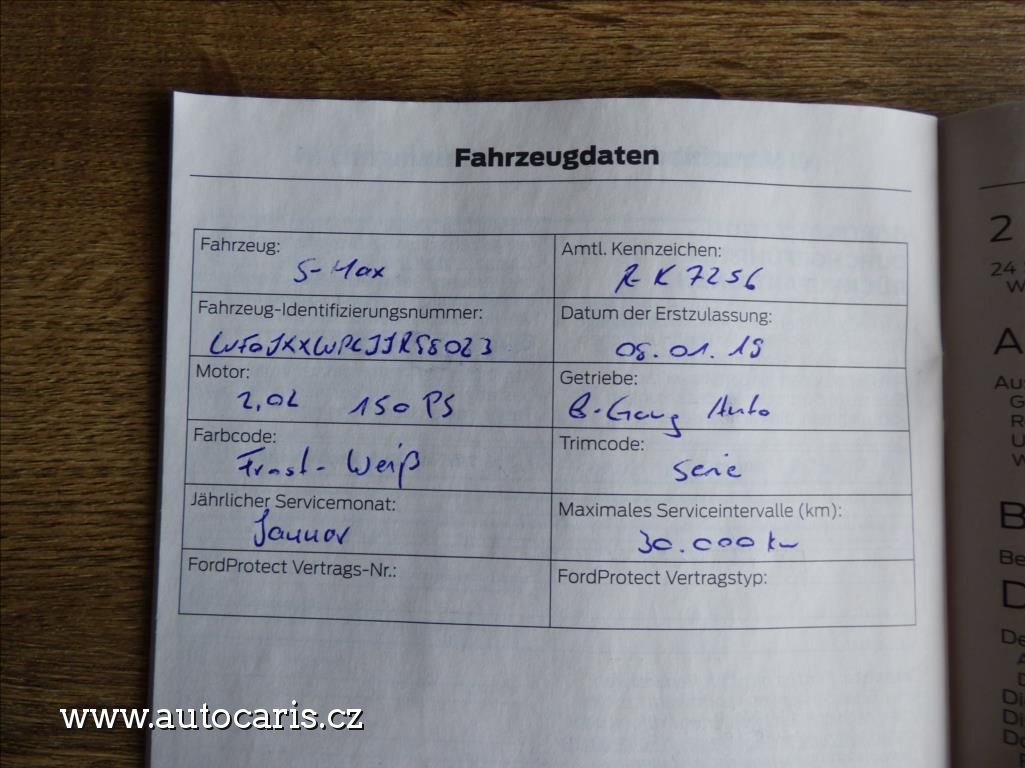 Fahrzeugdaten
Fahrzeug:
S-Max
Amtl. Kennzeichen:
R K 7256
Fahrzeug-Identifizierungsnummer:
Datum der Erstzulassung:
08.01.19
Motor:
2,0L 150 PS
Getriebe:
8-Gang Auto
Farbcode:
Frost-Weiß
Trimcode:
Serie
Jährlicher Servicemonat:
Januar
Maximales Serviceintervalle (km):
30.000 km
FordProtect Vertrags-Nr.:
FordProtect Vertragstyp:
2
24
W
A
Au
G
R
U
W
B
Be
D
De
A
D
Di
Di
Do
www.autocaris.cz